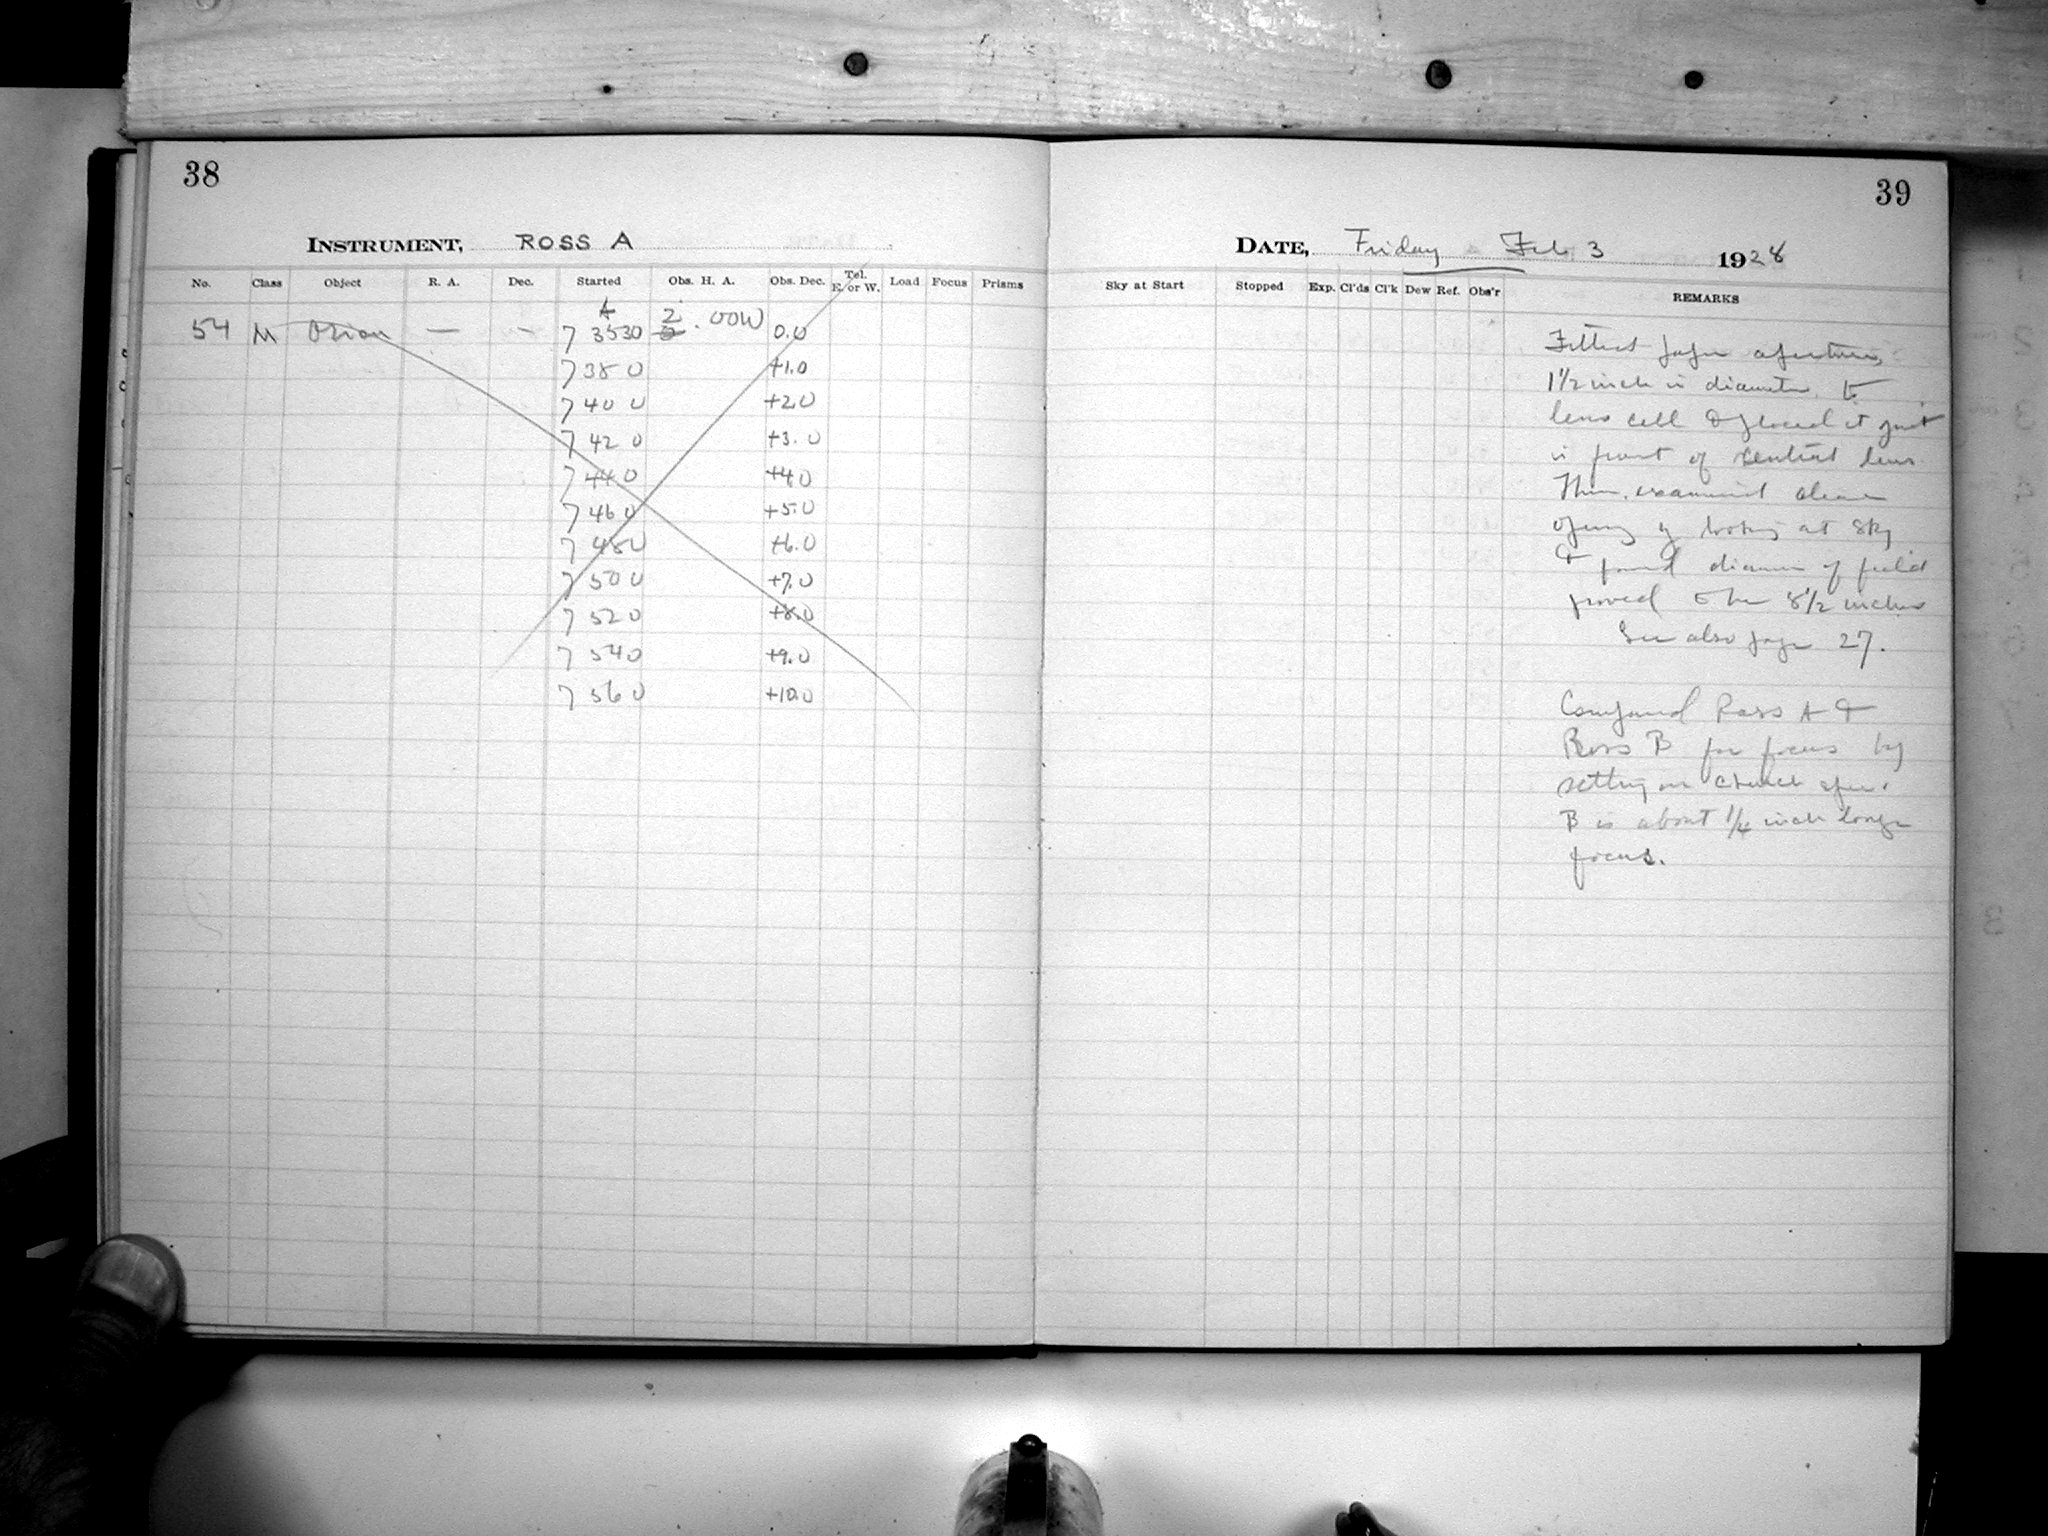 38
INSTRUMENT, ROSS A
No. Class Object R. A. Dec. Started Obs. H. A. Obs. Dec. Tel. E. or W. Load Focus Prisms
54 M Orion — — 7 35 30 2 .00W 0.0
7 38 0 +1.0
7 40 0 +2.0
7 42 0 +3.0
7 44 0 +4.0
7 46 0 +5.0
7 48 0 +6.0
7 50 0 +7.0
7 52 0 +8.0
7 54 0 +9.0
7 56 0 +10.0
39
DATE, Friday Feb 3 1928
Sky at Start Stopped Exp. Cl'ds Cl'k Dew Ref. Obs'r REMARKS
Fitted paper aperture,
1 1/2 inch in diameter to
lens cell & placed it just
in front of central lens
Then examined
opening by looking at sky
& found of field
proved to be 8 1/2 inches
See also page 27.
Compared Ross A &
Ross B for focus by
setting on church spire.
B is about 1/4 inch longer
focus.